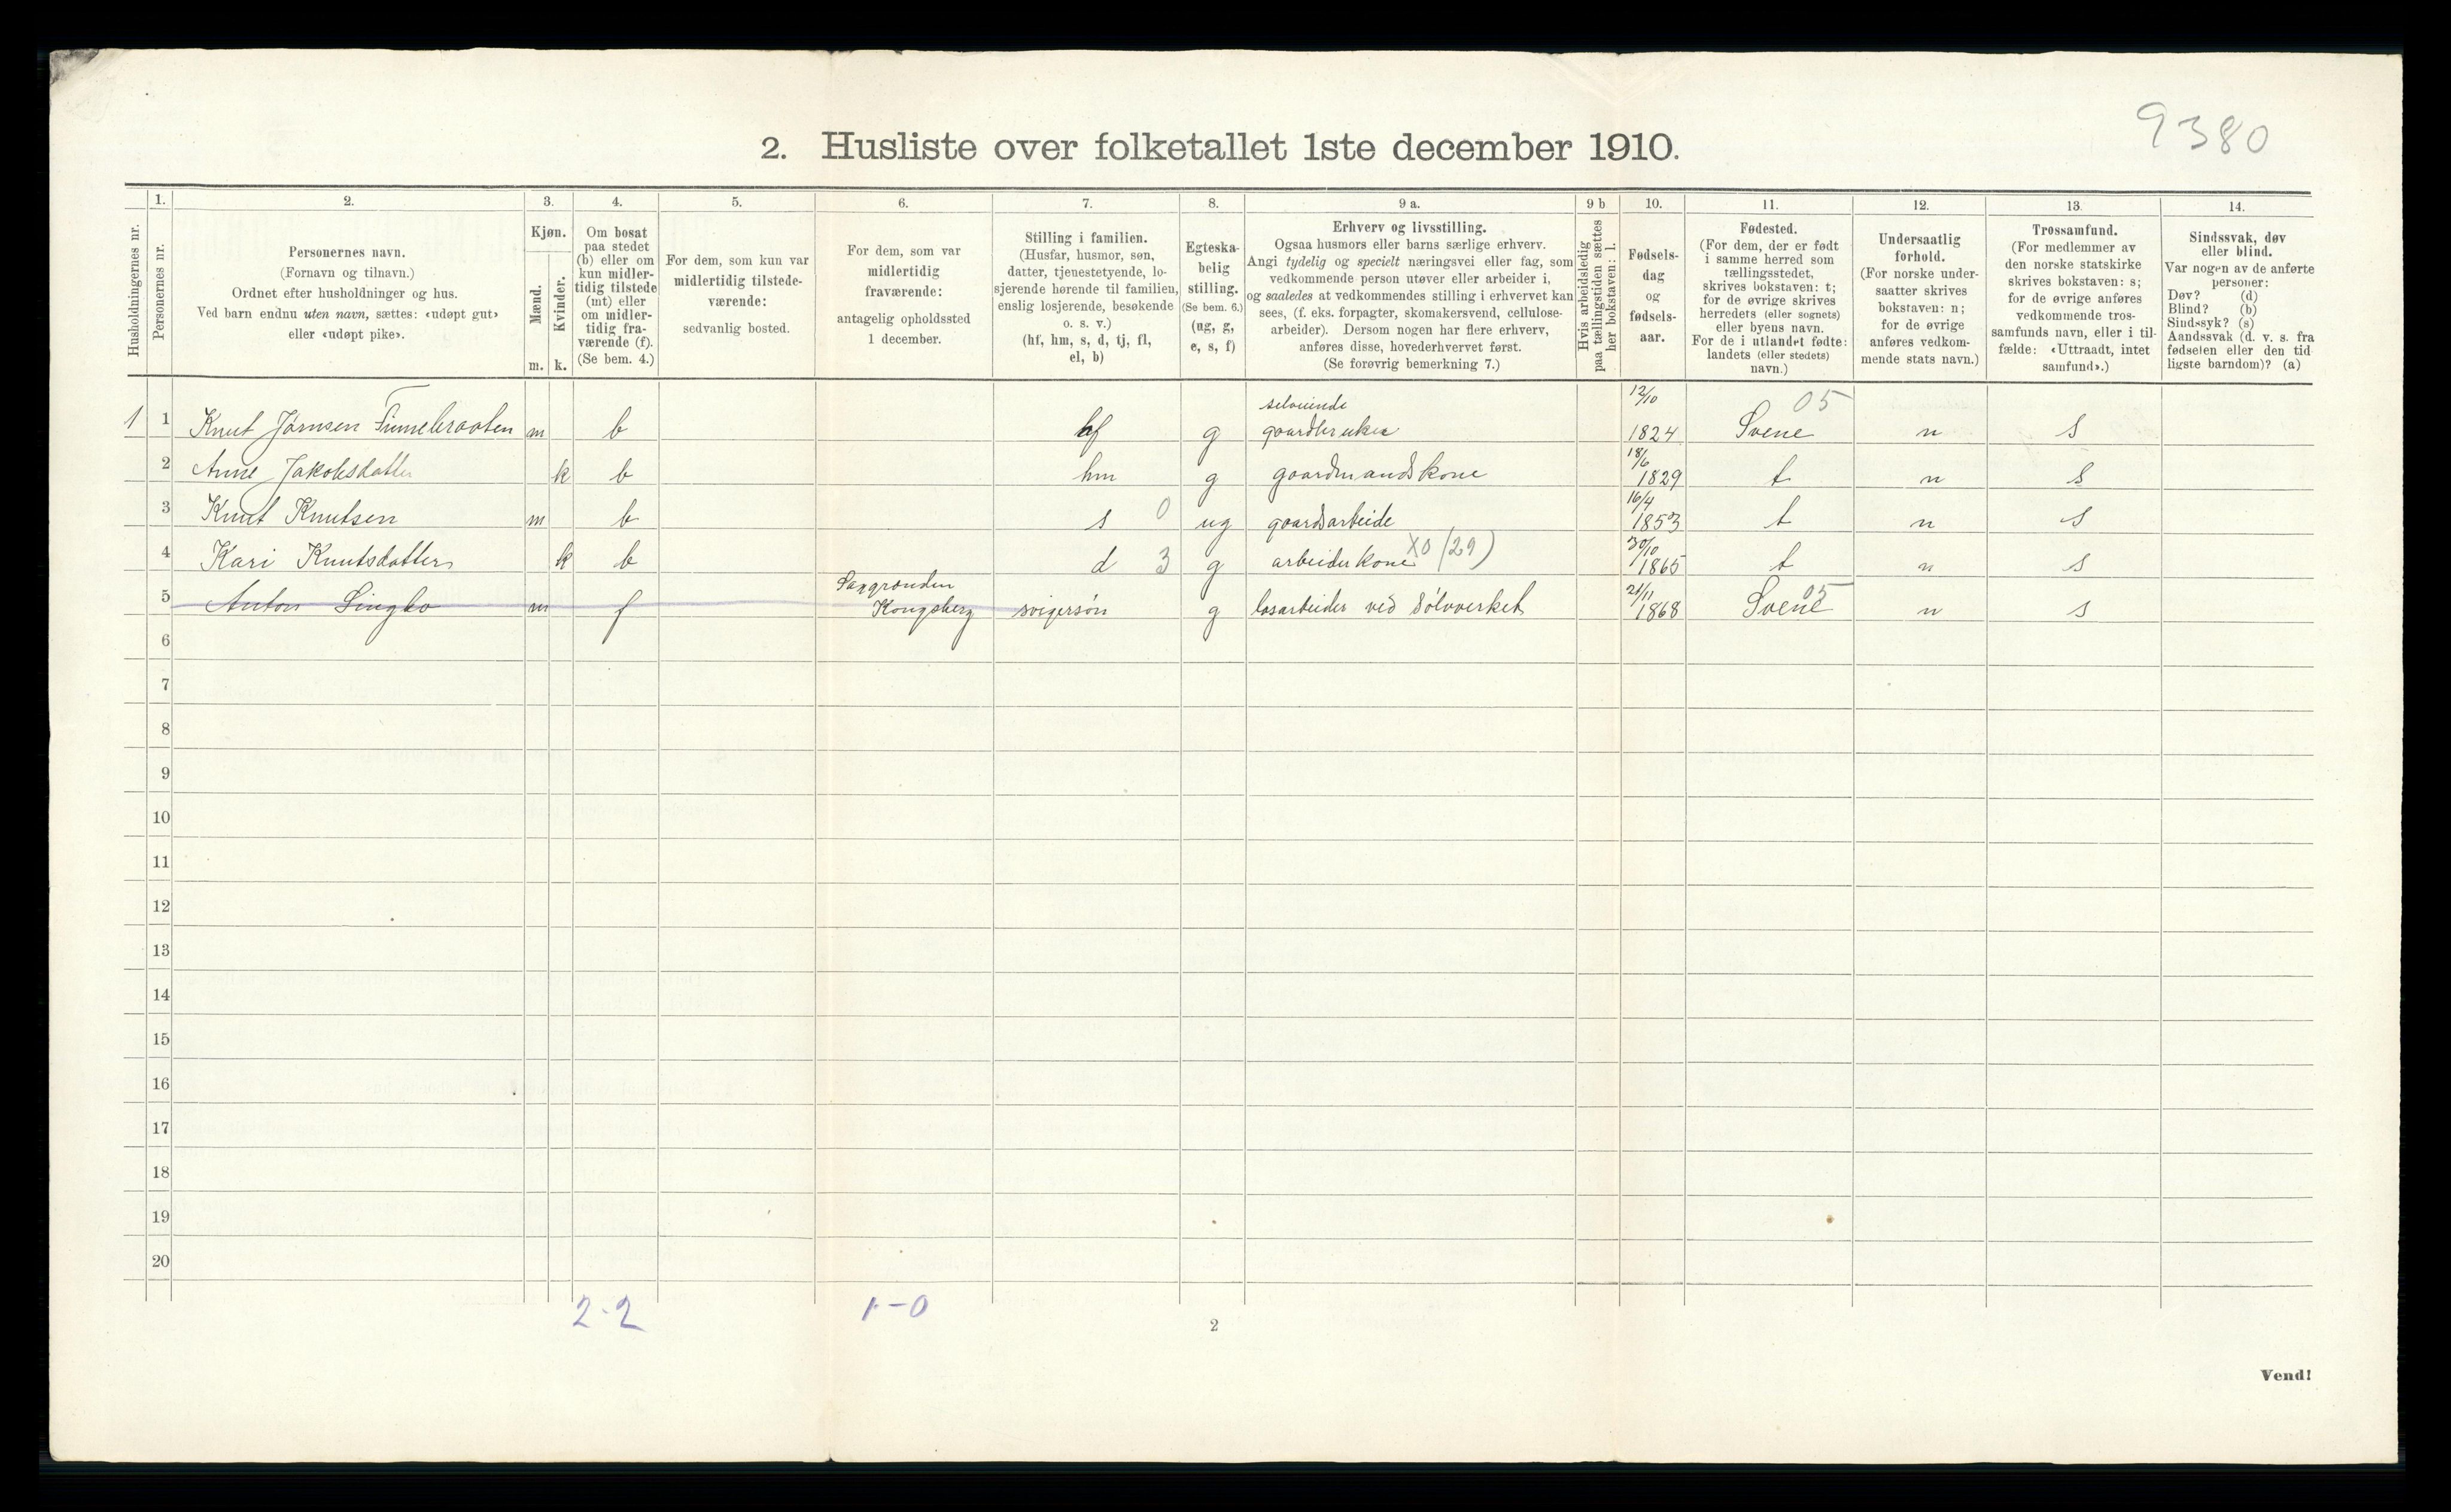 9380
2. Husliste over folketallet 1ste december 1910.
Husholdningernes nr.
1.
Personernes nr.
2.
Personernes navn.
(Fornavn og tilnavn.)
Ordnet efter husholdninger og hus.
Ved barn endnu uten navn, sættes: «udøpt gut»
eller «udøpt pike».
3.
Kjøn.
Mænd.
Kvinder.
m. k.
4.
Om bosat
paa stedet
(b) eller om
kun midler-
tidig tilstede
(mt) eller
om midler-
tidig fra-
værende (f).
(Se bem. 4.)
5.
For dem, som kun var
midlertidig tilstede-
værende:
sedvanlig bosted.
6.
For dem, som var
midlertidig
fraværende:
antagelig opholdssted
1 december.
7.
Stilling i familien.
(Husfar, husmor, søn,
datter, tjenestetyende, lo-
sjerende hørende til familien,
enslig losjerende, besøkende
o. s. v.)
(hf, hm, s, d, tj, fl,
el, b)
8.
Egteska-
belig
stilling.
(Se bem. 6.)
(ug, g,
e, s, f)
9 a.
Erhverv og livsstilling.
Ogsaa husmors eller barns særlige erhverv.
Angi tydelig og specielt næringsvei eller fag, som
vedkommende person utøver eller arbeider i,
og saaledes at vedkommendes stilling i erhvervet kan
sees, (f. eks. forpagter, skomakersvend, cellulose-
arbeider). Dersom nogen har flere erhverv,
anføres disse, hovederhvervet først.
(Se forøvrig bemerkning 7.)
9 b
Hvis arbeidsledig
paa tællingstiden sættes
her bokstaven: l.
10.
Fødsels-
dag
og
fødsels-
aar.
11.
Fødested.
(For dem, der er født
i samme herred som
tællingsstedet,
skrives bokstaven: t;
for de øvrige skrives
herredets (eller sognets)
eller byens navn.
For de i utlandet fødte:
landets (eller stedets)
navn.)
12.
Undersaatlig
forhold.
(For norske under-
saatter skrives
bokstaven: n;
for de øvrige
anføres vedkom-
mende stats navn.)
13.
Trossamfund.
(For medlemmer av
den norske statskirke
skrives bokstaven: s;
for de øvrige anføres
vedkommende tros-
samfunds navn, eller i til-
fælde: «Uttraadt, intet
samfund».)
14.
Sindssvak, døv
eller blind.
Var nogen av de anførte
personer:
Døv? (d)
Blind? (b)
Sindssyk? (s)
Aandssvak (d. v. s. fra
fødselen eller den tid
ligste barndom)? (a)
selveiende 12/10 05
1 1 Knut Jørnsen m b hf g gaardbruker 1824 Svene n s
18/6
2 Anne Jakobsdatter k b hm g gaardmandskone 1829 t n s
16/4
3 Knut Knutsen m b s 0 ug gaardsarbeide 1853 t n s
30/10
4 Kari Knutsdatter k b d 3 g arbeiderkone X0 (29) 1865 t n s
Saggrænden 21/11 05
5 Anton Lingbo m f Kongsberg svigersøn g løsarbeider ved Sølvverket 1868 Svene n s
6
7
8
9
10
11
12
13
14
15
16
17
18
19
20
2-2 1-0
2
Vend!